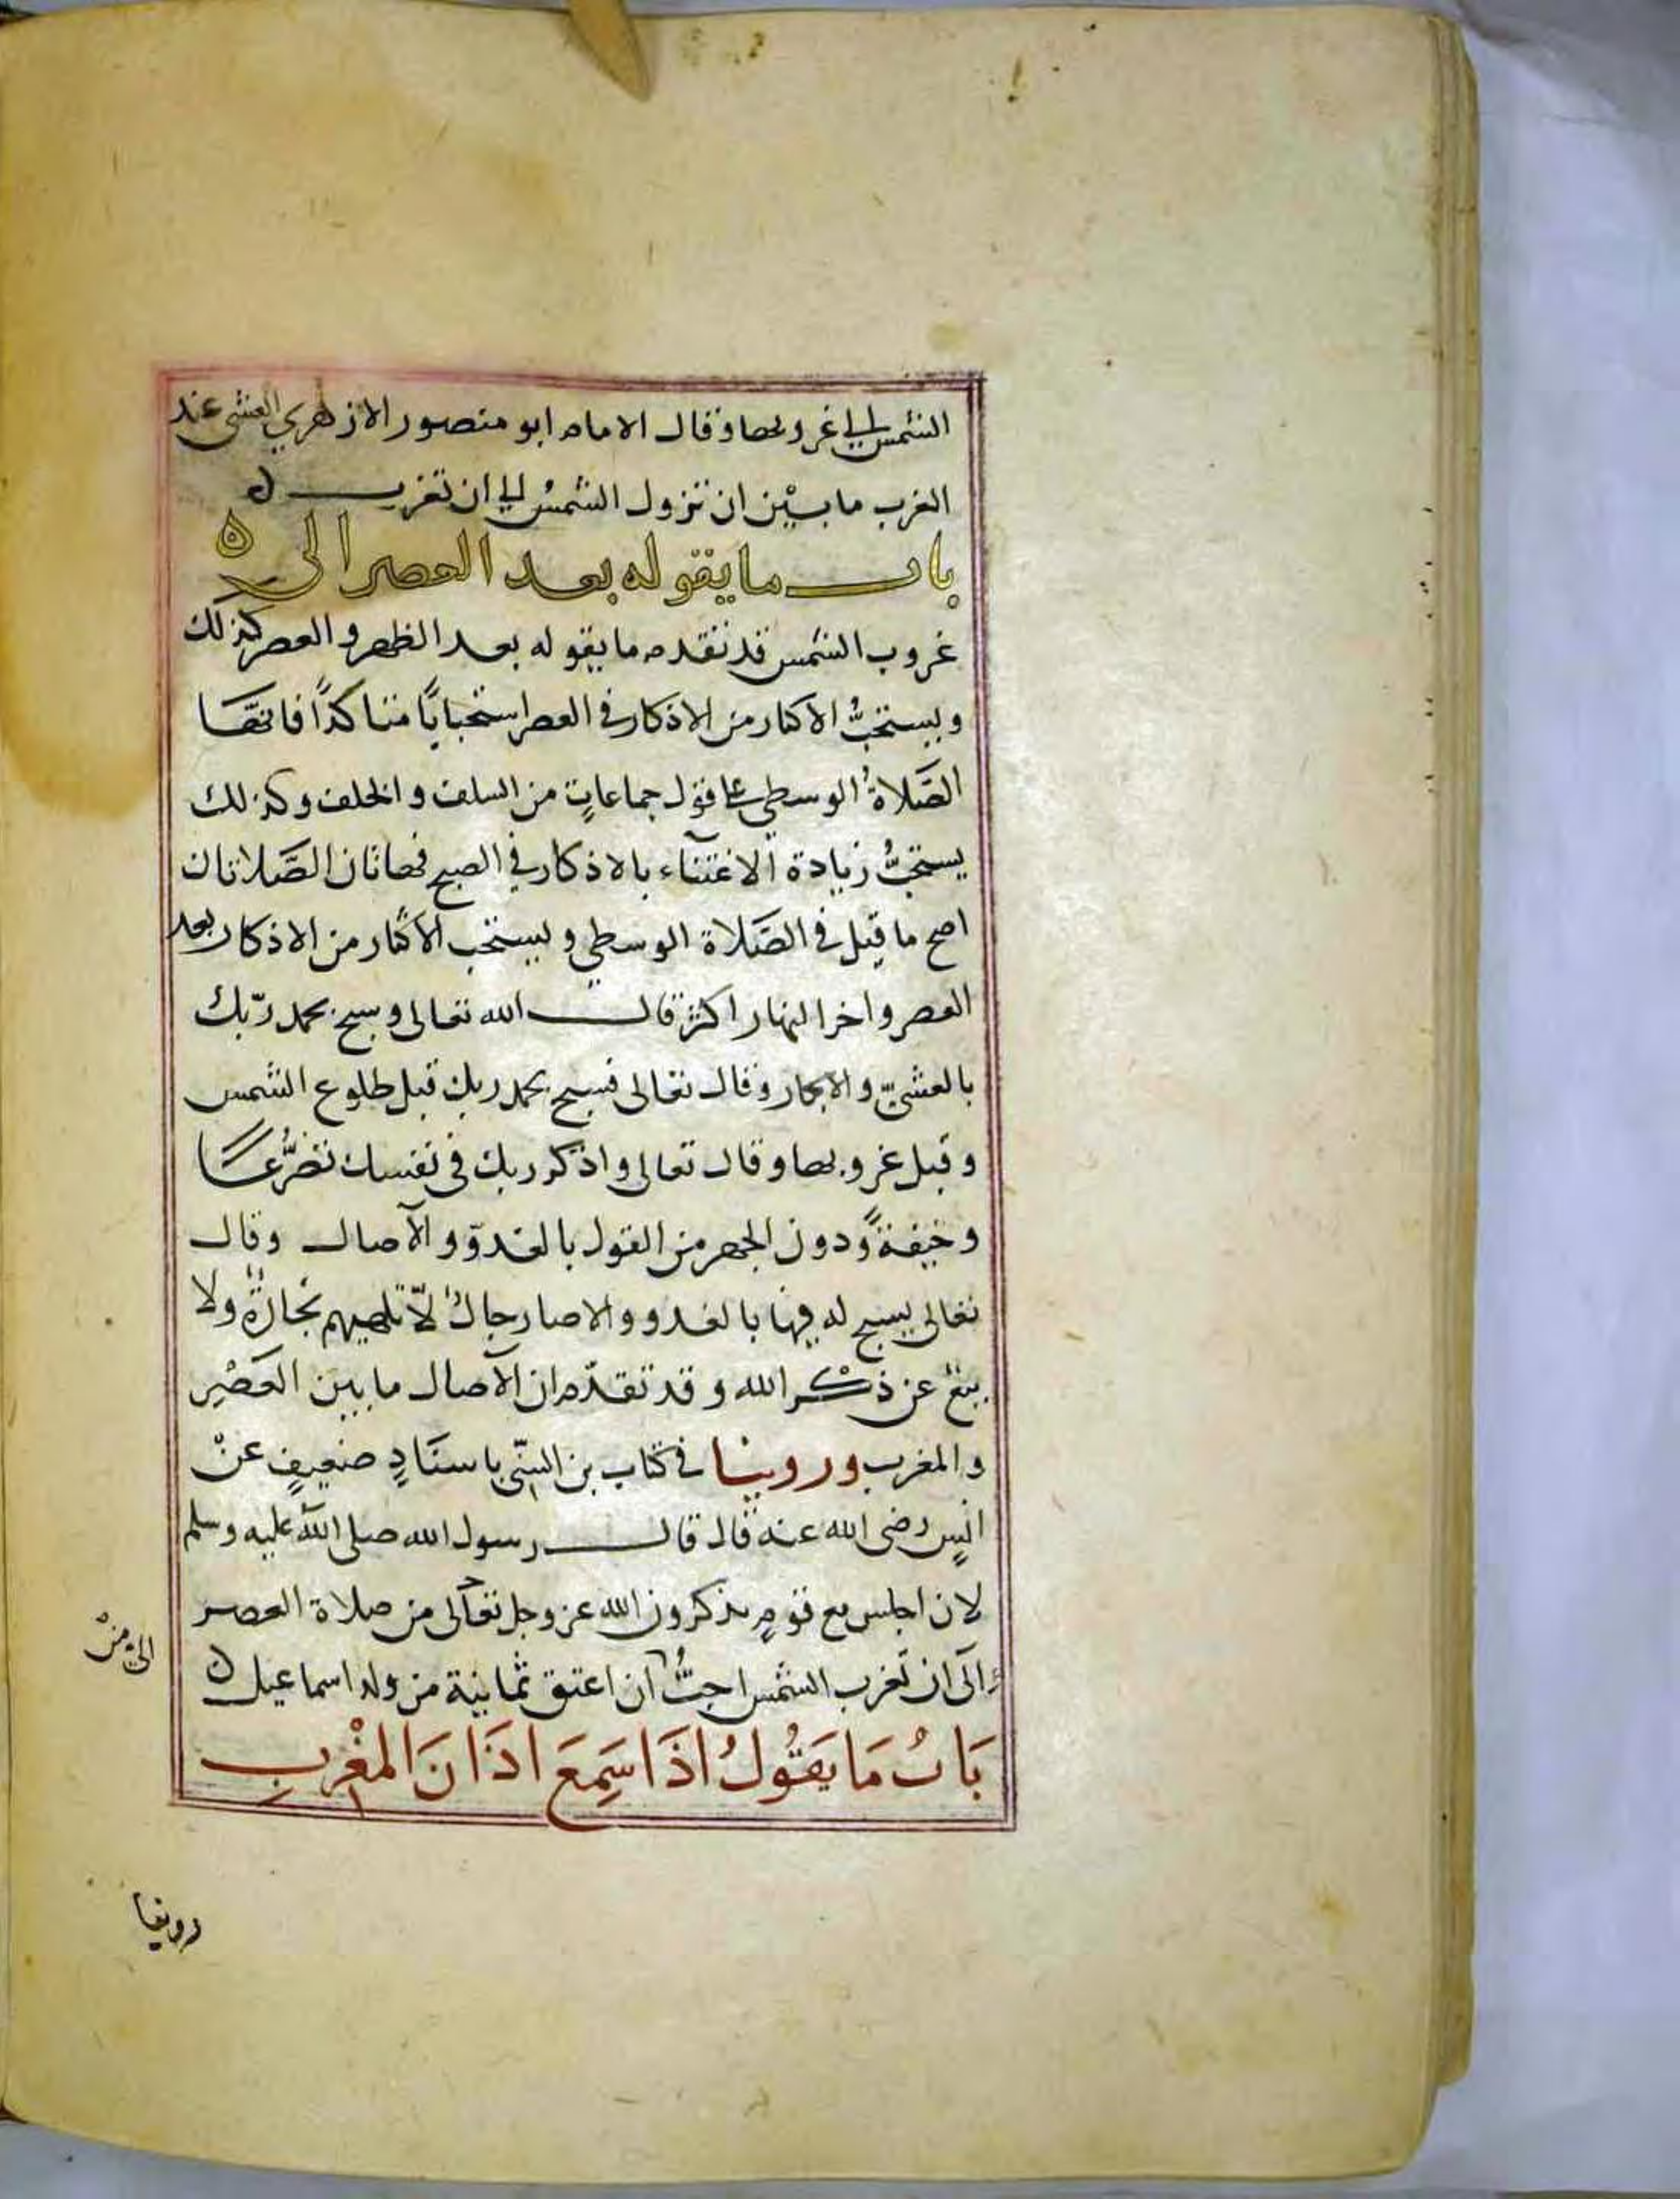 الشمس الى غروبها وقال الامام ابو منصور الازهري العشي عند
العرب ما بين ان تزول الشمس الى ان تغرب
باب ما يقوله بعد العصر الى
غروب الشمس قد تقدم ما يقوله بعد الظهر والعصر كذلك
ويستحبُّ الاكثار من الاذكار في العصر استحبابًا متاكدًا فانهَّا
الصَّلاةُ الوسطي على قول جماعاتٍ من السلف والخلف وكذلك
يستحبُّ زيادة الاعتنآء بالاذكار في الصبح فهاتان الصَّلاتان
اصح ما قيل في الصَّلاة الوسطي ويستحب الاكثار من الاذكار بعد
العصر واخر النهار اكثر قال الله تعالى وسبح بحمد ربّك
بالعشيّ والابكار وقال تعالى فسبح بحمد ربك قبل طلوع الشمس
وقبل غروبها وقال تعالى واذكر ربك في نفسك تضرُّعًا
وخيفةً ودون الجهر من القول بالغدوّ والآصال وقال
تعالى يسبح له فيها بالغدو والاصار رجالٌ لاّ تلهيهم تجارةٌ ولا
بيعٌ عن ذكْر الله وقد تقدّم ان الآصال ما بين العَصْرِ
والمغرب وروينا في كتاب بن السنّي باسنَادٍ ضعيفٍ عنْ
انسٍ رضي الله عنه قال قال رسول الله صلى الله عليه وسلم
لان اجلس مع قومٍ يذكرون الله عز وجل تعالى من صلاة العصر
الى ان تغرب الشمس احبُّ ان اعتق ثمانية من ولد اسماعيل
اليَّ منْ
بَابُ مَا يَقُولُ اذَا سَمِعَ اذَانَ المغْربِ
روينا